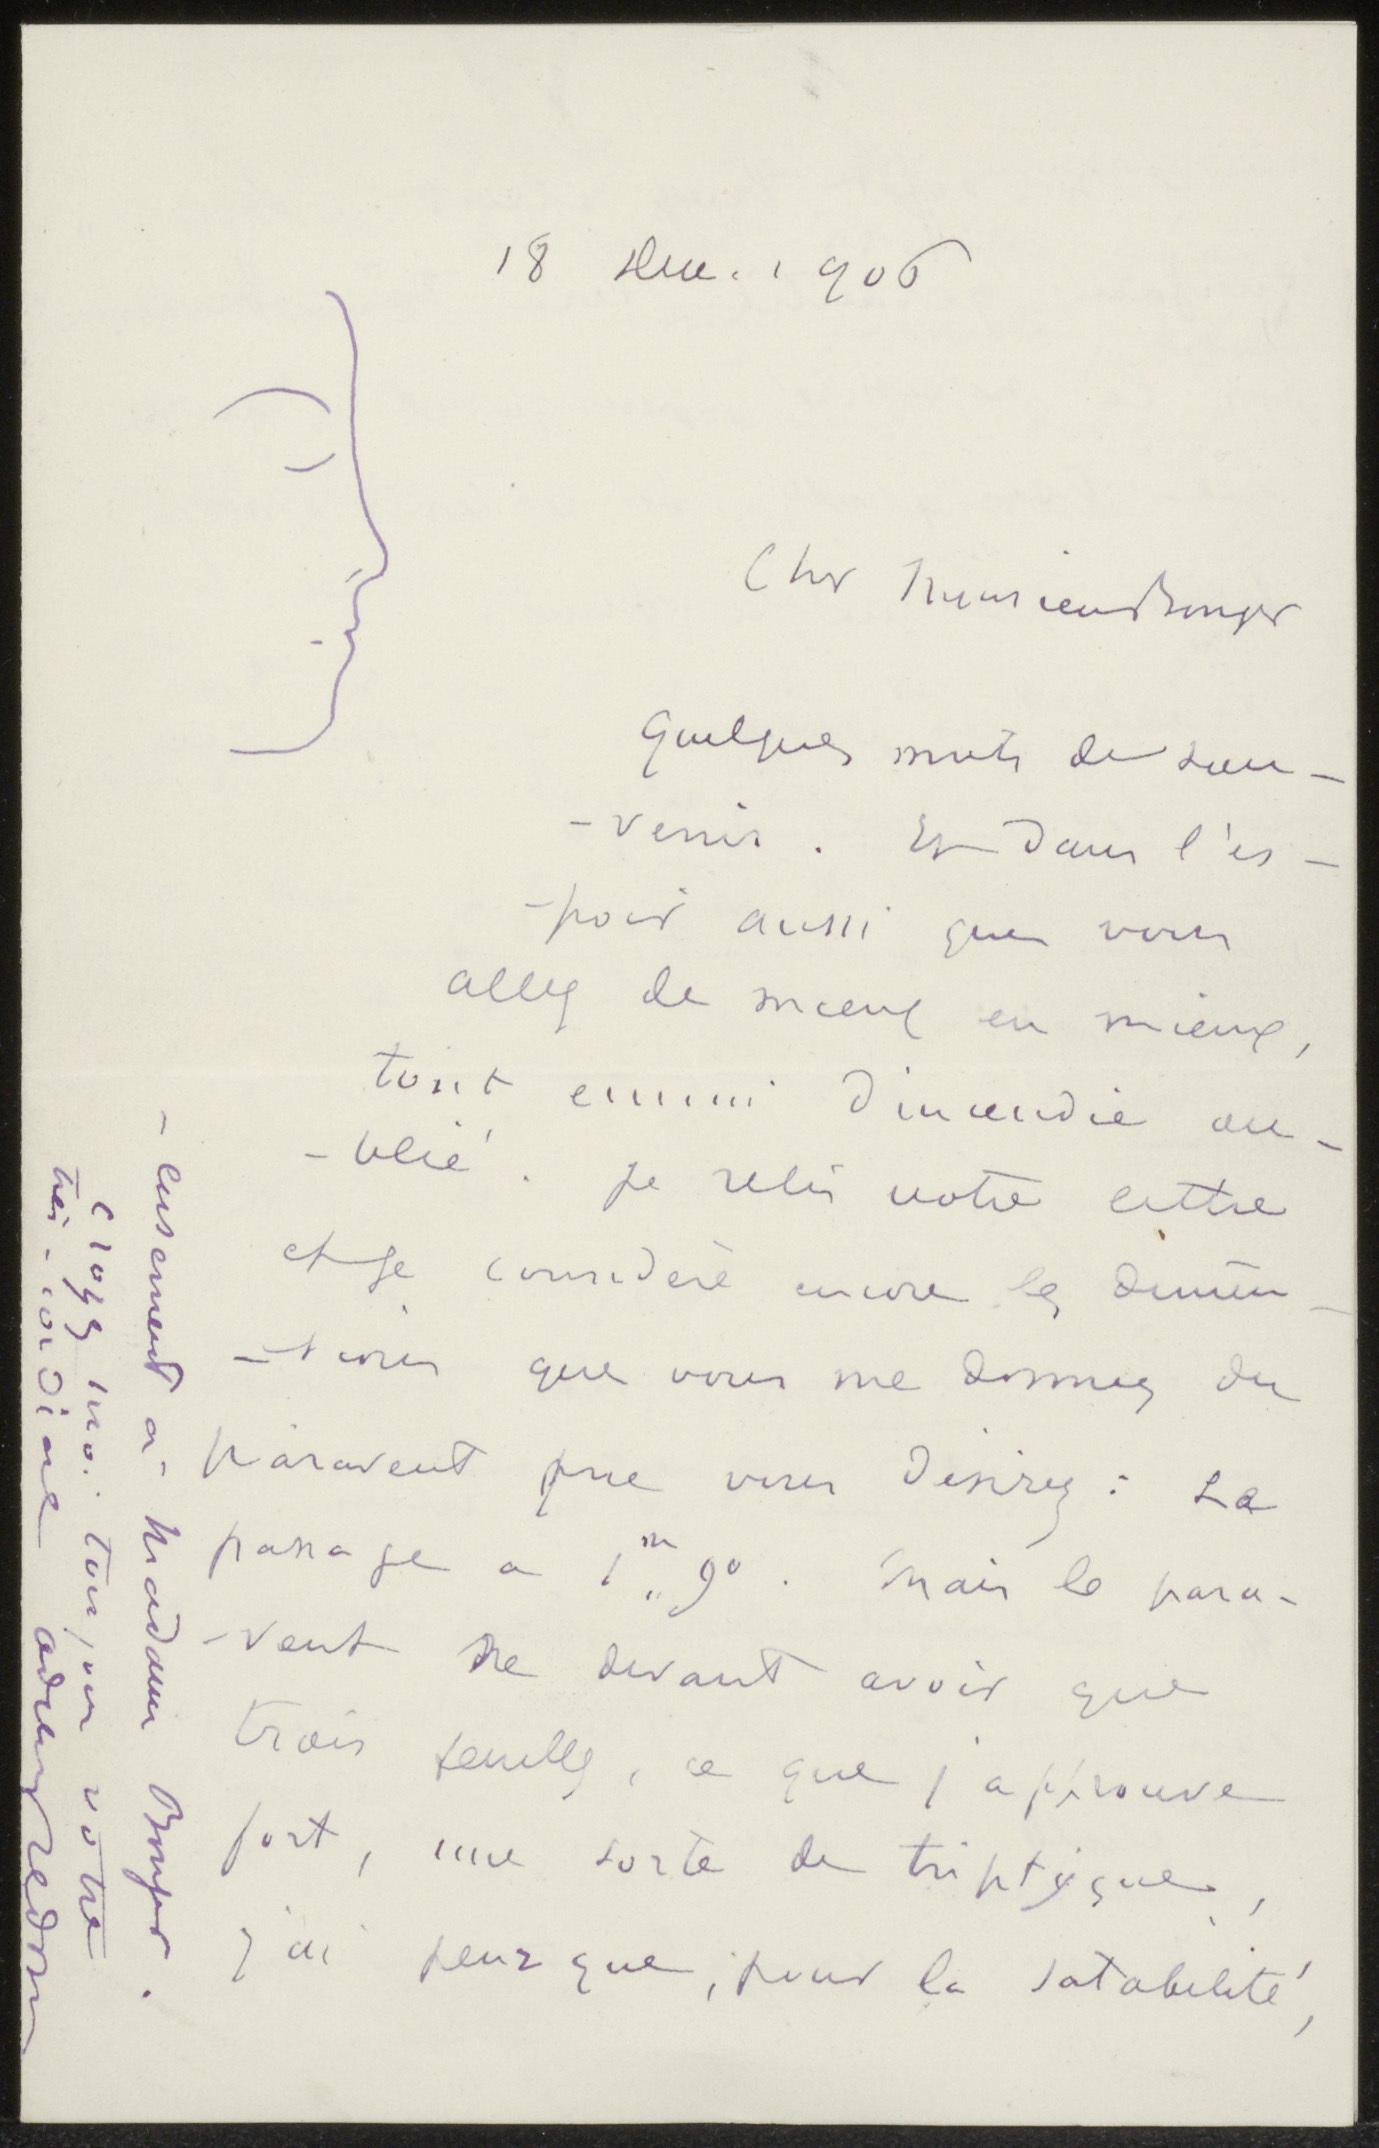 18 Dec. 1906
Cher Monsieur Bonger
Quelques mots de sou-
-venir. Et dans l'es-
-poir aussi que vous
allez de mieux en mieux,
tout ennui d'incendie ou-
-blié. Je relis votre lettre
et je considère encore les dimen-
-sions que vous me donnez du
paravent que vous désirez : la
passage a 1m,,90. Mais le para-
-vent ne devant avoir que
trois feuilles, ce que j'approuve
fort, une sorte de triptyque,
j'ai peur que, pour la satabilité,
-eusement à Madame Bonger.
croyez moi toujours votre
très-cordial odilon redon